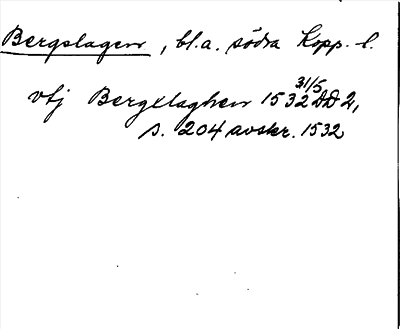 Bergslagen, bl.a. södra Kopp. l.
vtj Bergxlaghen 1532 31/5 DD 2,
s. 204 avskr. 1532